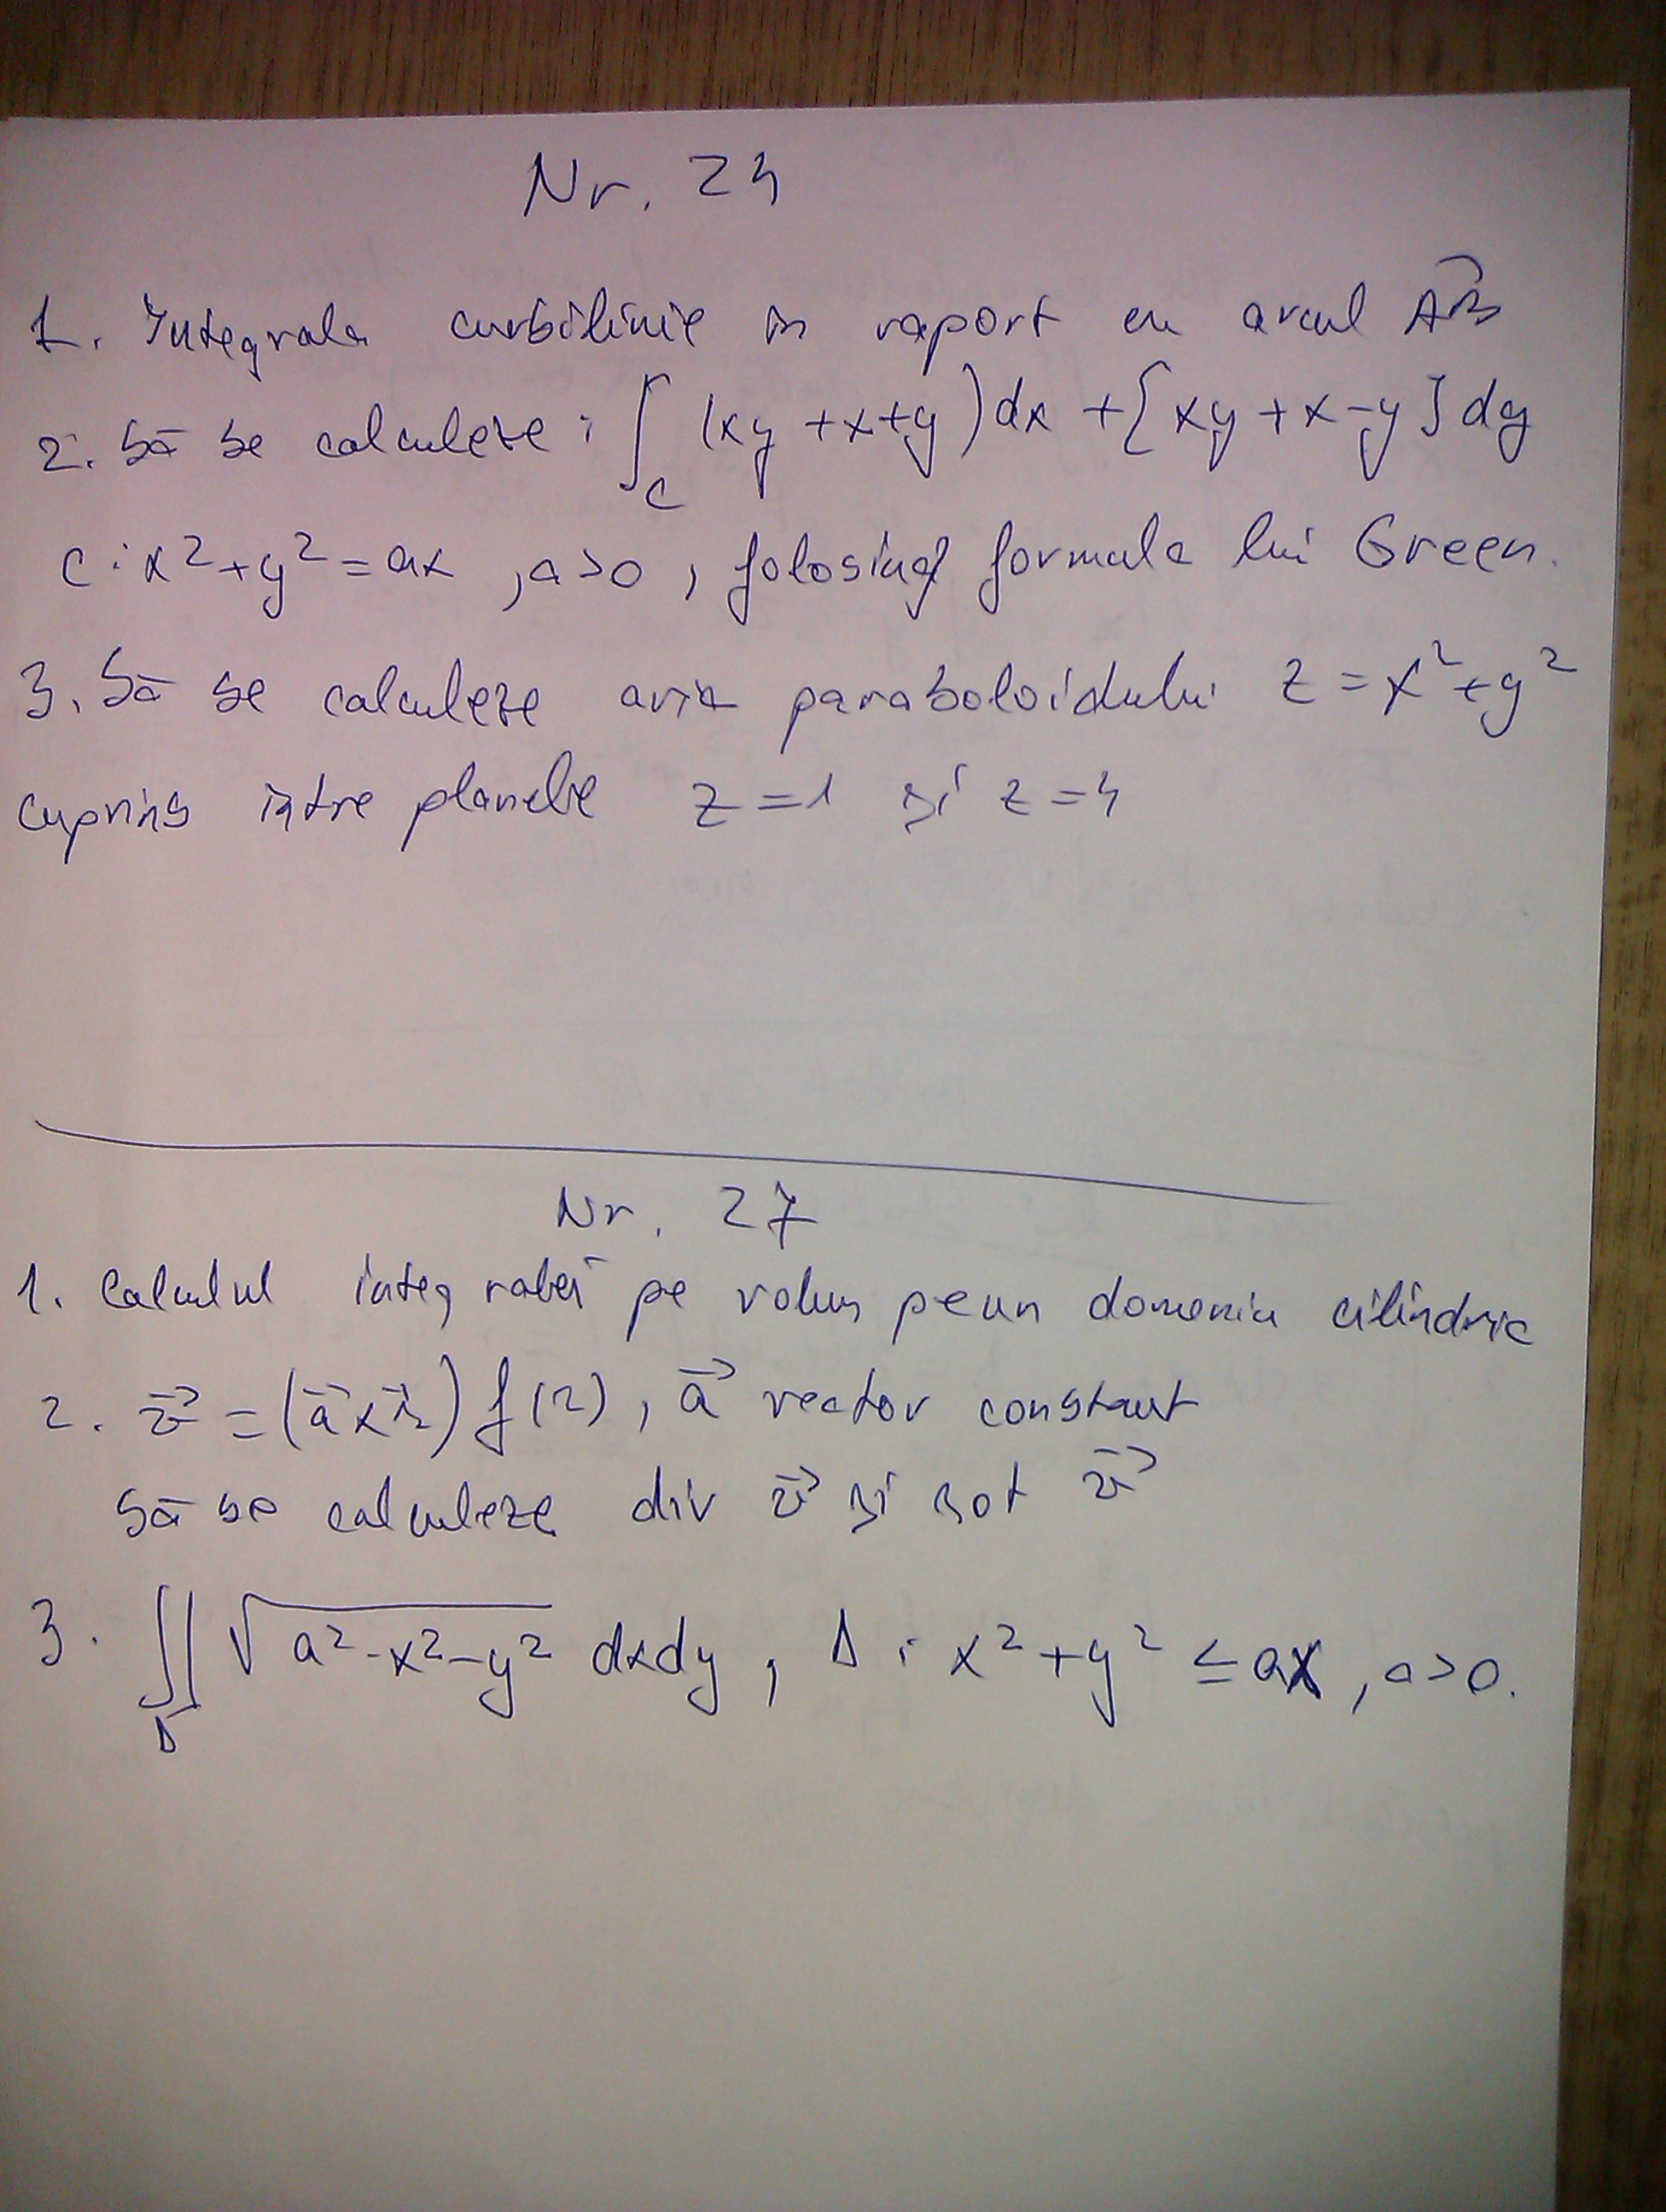 Nr. 24
1. Integrala curbilinie in raport cu arcul AB
2. Să se calculeze: ∫_C (xy + x + y)dx + [xy + x - y]dy
C: x² + y² = ax, a>0, folosind formula lui Green.
3. Să se calculeze aria paraboloidului z = x² + y²
cuprins intre planele z = 1 și z = 4
Nr. 27
1. Calculul integralei pe volum pe un domeniu cilindric
2. v⃗ = (a⃗ x r⃗) f(r), a⃗ vector constant
Să se calculeze div v⃗ și rot v⃗
3. ∬_D √(a² - x² - y²) dxdy, D: x² + y² ≤ ax, a>0.